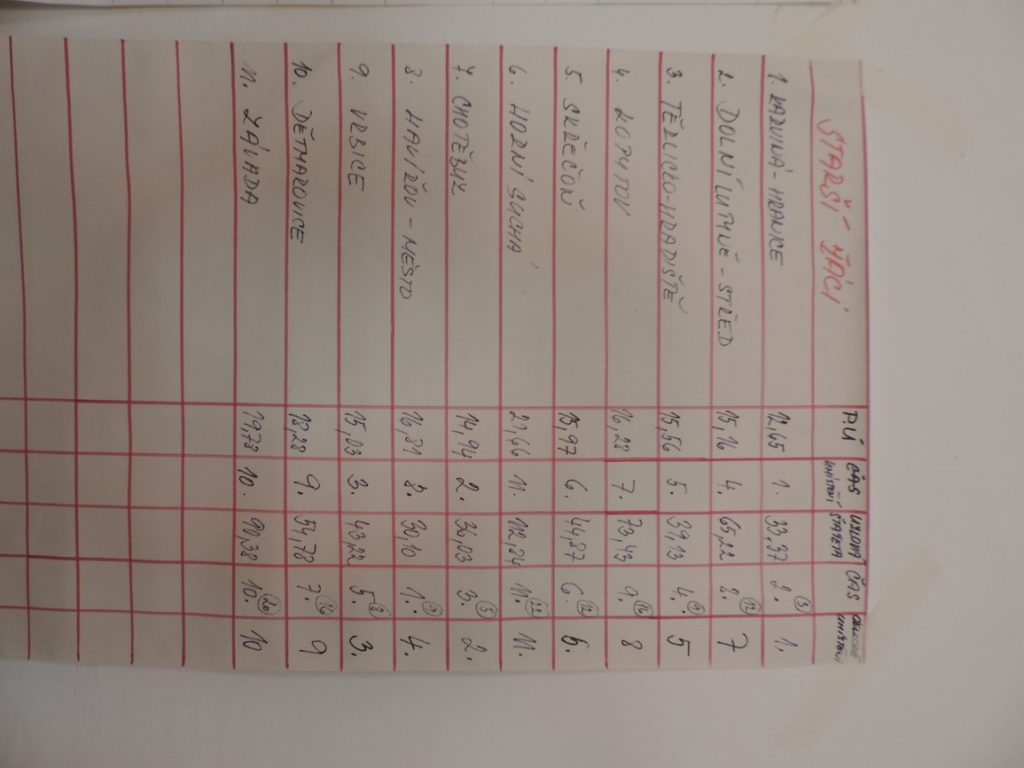 STARŠÍ ŽÁCI P.Ú ČAS UMÍSTĚNÍ UZLOVÁ ŠTAFETA ČAS CELKOVÉ UMÍSTĚNÍ
1. KARVINÁ - HRANICE 12,65 1. 33,37 2. 3 1.
2. DOLNÍ LUTYNĚ - STŘED 15,16 4. 65,22 8. 12 7
3. TĚRLICKO - HRADIŠTĚ 15,56 5. 39,13 4. 9 5
4. KOPYTOV 16,28 7. 73,43 9. 16 8
5. SKŘEČOŇ 15,97 6. 44,87 6. 12 6.
6. HORNÍ SUCHÁ 21,66 11. 112,84 11. 22 11.
7. CHOTĚBUZ 14,94 2. 36,03 3. 5 2.
8. HAVÍŘOV - MĚSTO 16,81 8. 30,10 1. 9 4.
9. VRBICE 15,03 3. 43,22 5. 8 3.
10. DĚTMAROVICE 18,28 9. 54,78 7. 16 9
11. ZÁVADA 19,78 10. 90,38 10. 20 10